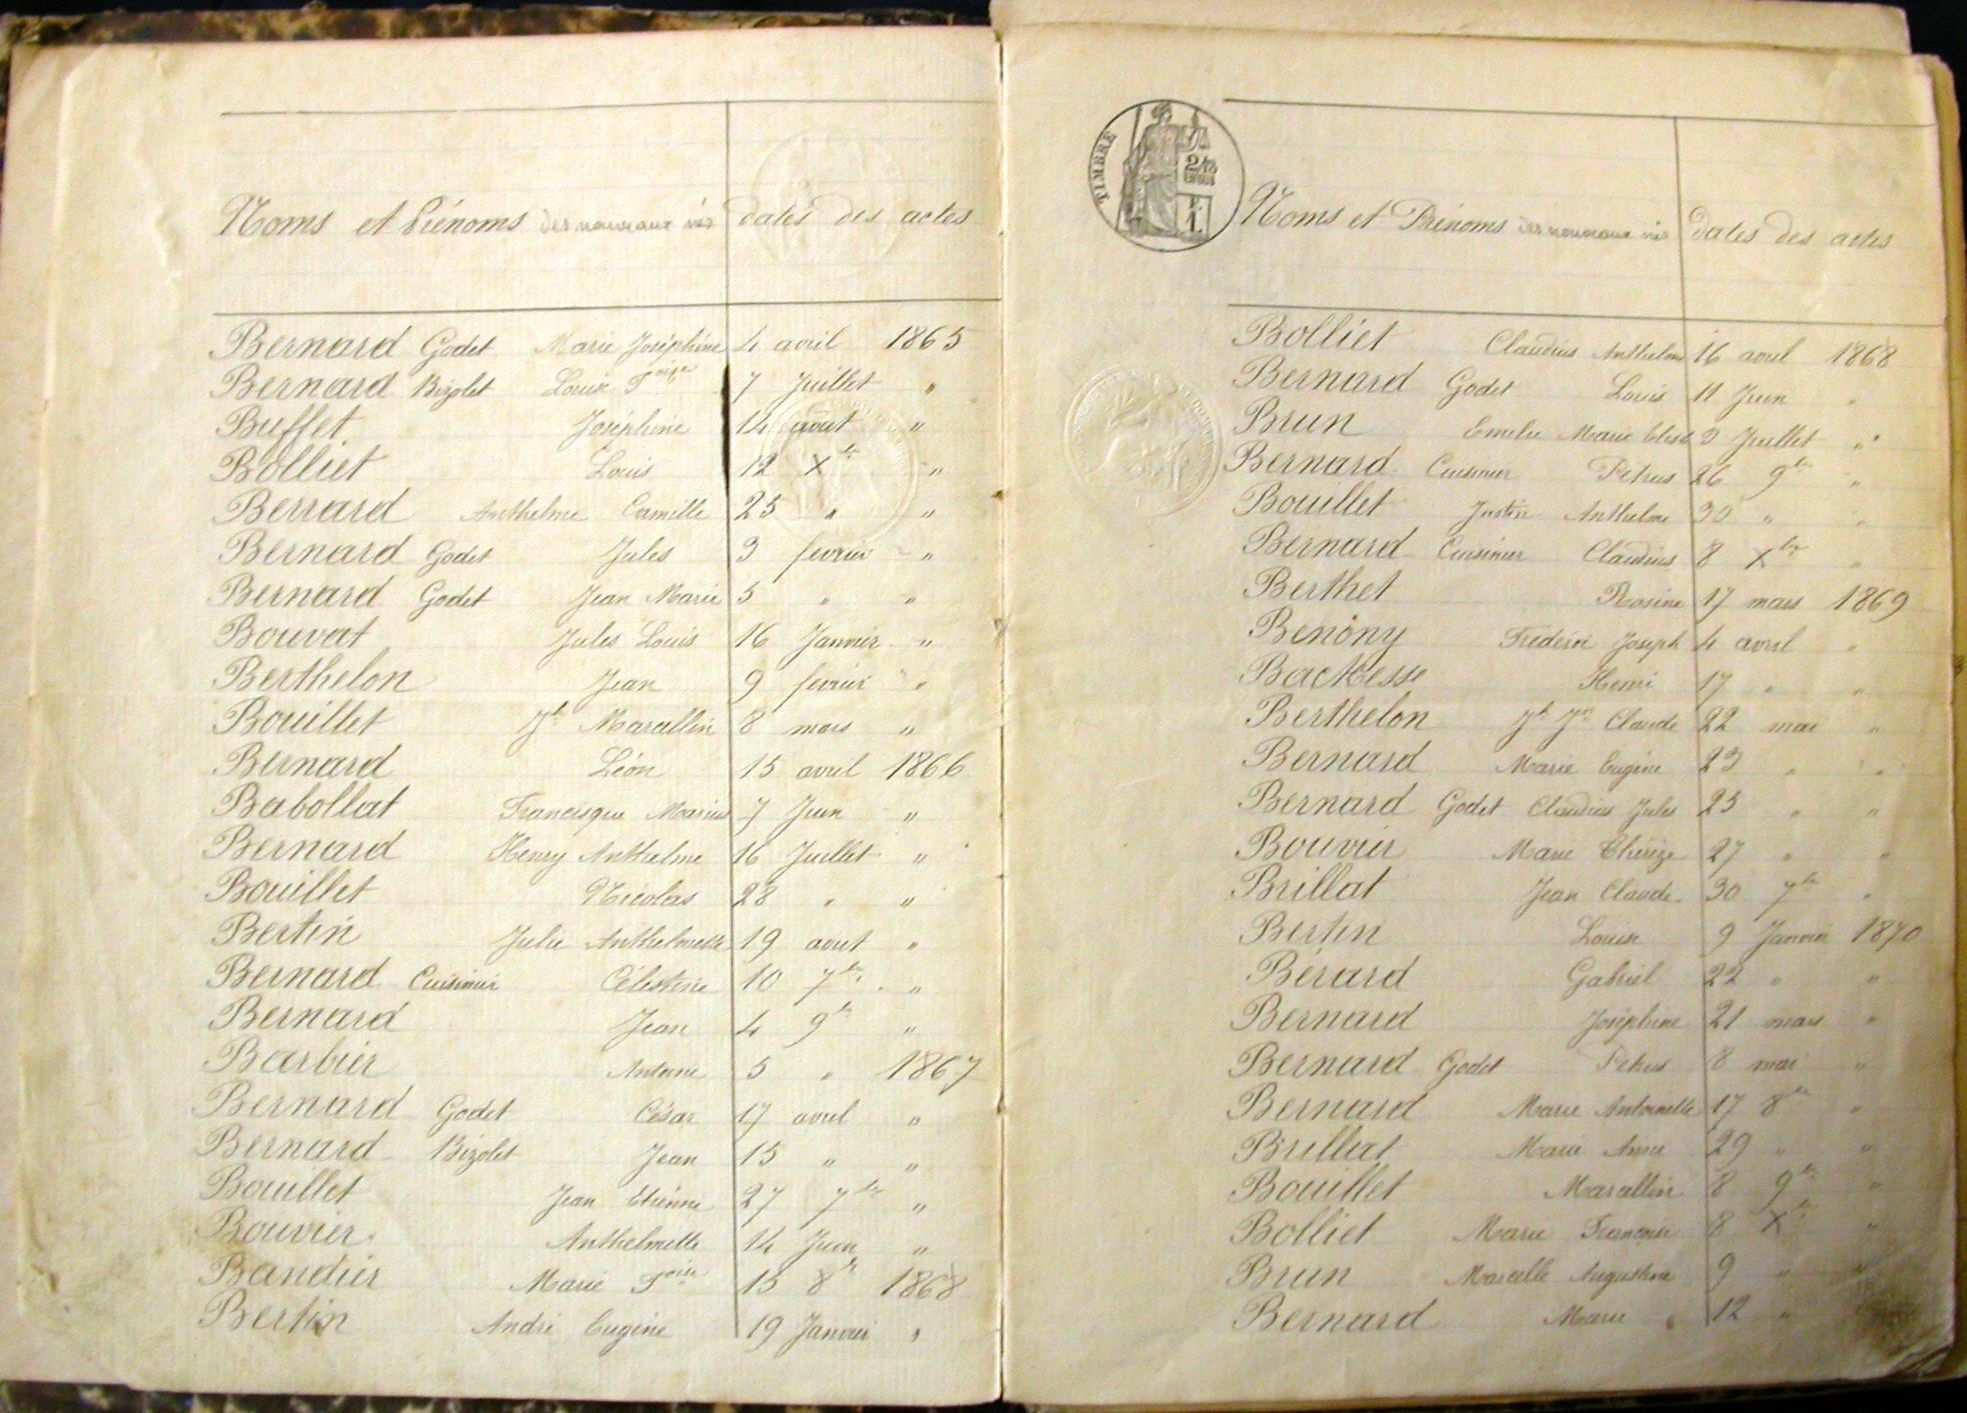 Noms et Prénoms des nouveaux nés dates des actes
Bernard Godet Marie Joséphine 4 avril 1865
Bernard Bizolet Louis Foise 7 Juillet "
Buffet Joséphine 14 aout "
Bolliet Louis 12 Xbre "
Berrard Anthelme Camille 25 " "
Bernard Godet Jules 3 fevrier "
Bernard Godet Jean Marie 5 " "
Bouvat Jules Louis 16 Janvier "
Berthelon Jean 9 fevrier "
Bouillet Jh Marcellin 8 mars "
Bernard Léon 15 avril 1866
Babollat Francisque Marius 7 Juin "
Bernard Henry Anthelme 16 Juillet "
Bouillet Nicolas 28 " "
Bertin Julie Anthelmette 19 aout "
Bernard Cuisinier Célestine 10 7bre "
Bernard Jean 4 9bre "
Barbier Antoine 5 " 1867
Bernard Godet César 17 avril "
Bernard Bizolet Jean 15 " "
Bouillet Jean Etiénne 27 7bre "
Bouvier Anthelmette 14 Juin "
Bandier Marie Foise 15 8bre 1868
Bertin André Eugène 19 Janvier "
TIMBRE
Noms et Prénoms des nouveaux nés dates des actes
Bolliet Claudius Anthelme 16 avril 1868
Bernard Godet Louis 11 Juin "
Brun Emelie Marie Elise 9 Juillet "
Bernard Cuisinier Petrus 26 9bre "
Bouillet Justin Anthelme 30 " "
Bernard Cuisinier Claudius 8 Xbre "
Berthet Rosine 17 mars 1869
Benony Frederic Joseph 4 avril "
Backesse Henri 17 " "
Berthelon Jh Claude 22 mai "
Bernard Marie Eugène 23 " "
Bernard Godet Claudius Jules 25 " "
Bouvier Marie Thérèze 27 " "
Brillat Jean Claude 30 7bre "
Bertin Louise 9 Janvier 1870
Bérard Gabriel 22 " "
Bernard Joséphine 21 mars "
Bernard Godet Petrus 8 mai "
Bernard Marie Antoinette 17 8bre "
Brillat Marie Anne 29 " "
Bouillet Marcellin 8 9bre "
Bolliet Marie Françoise 8 Xbre "
Brun Marcelle Augustine 9 " "
Bernard Marie 12 "